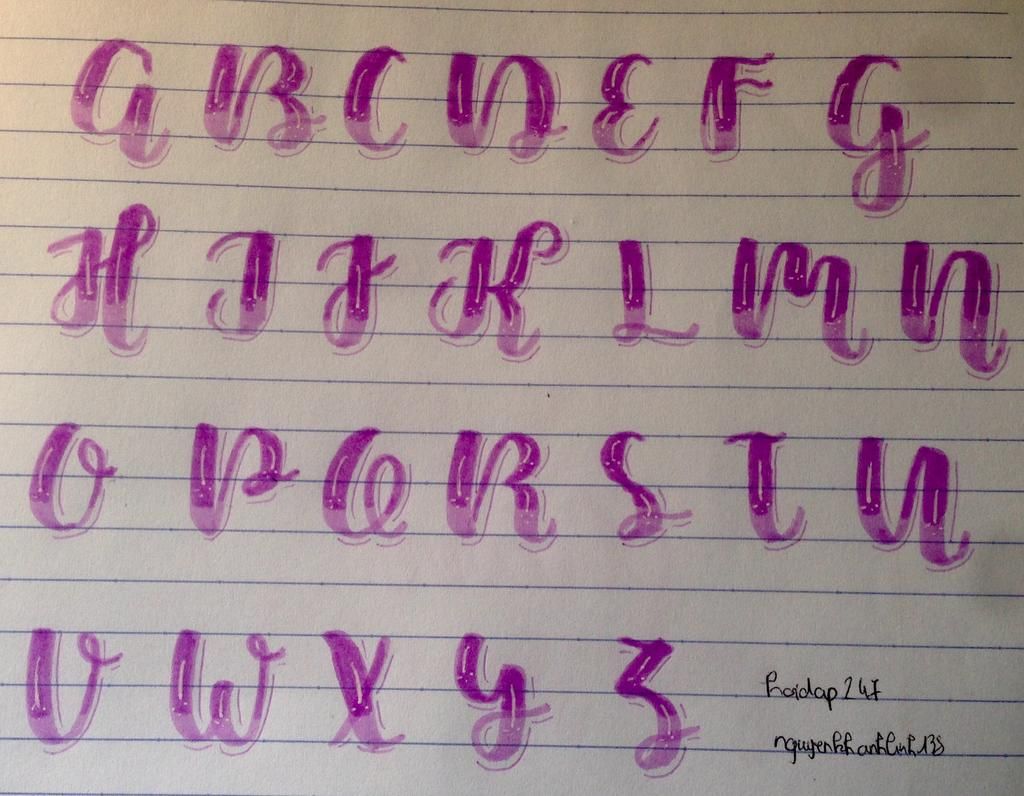 A B C D E F G
H I J K L M N
O P Q R S T U
V W X Y Z
hoidap247
nguyenkhanhlinh138